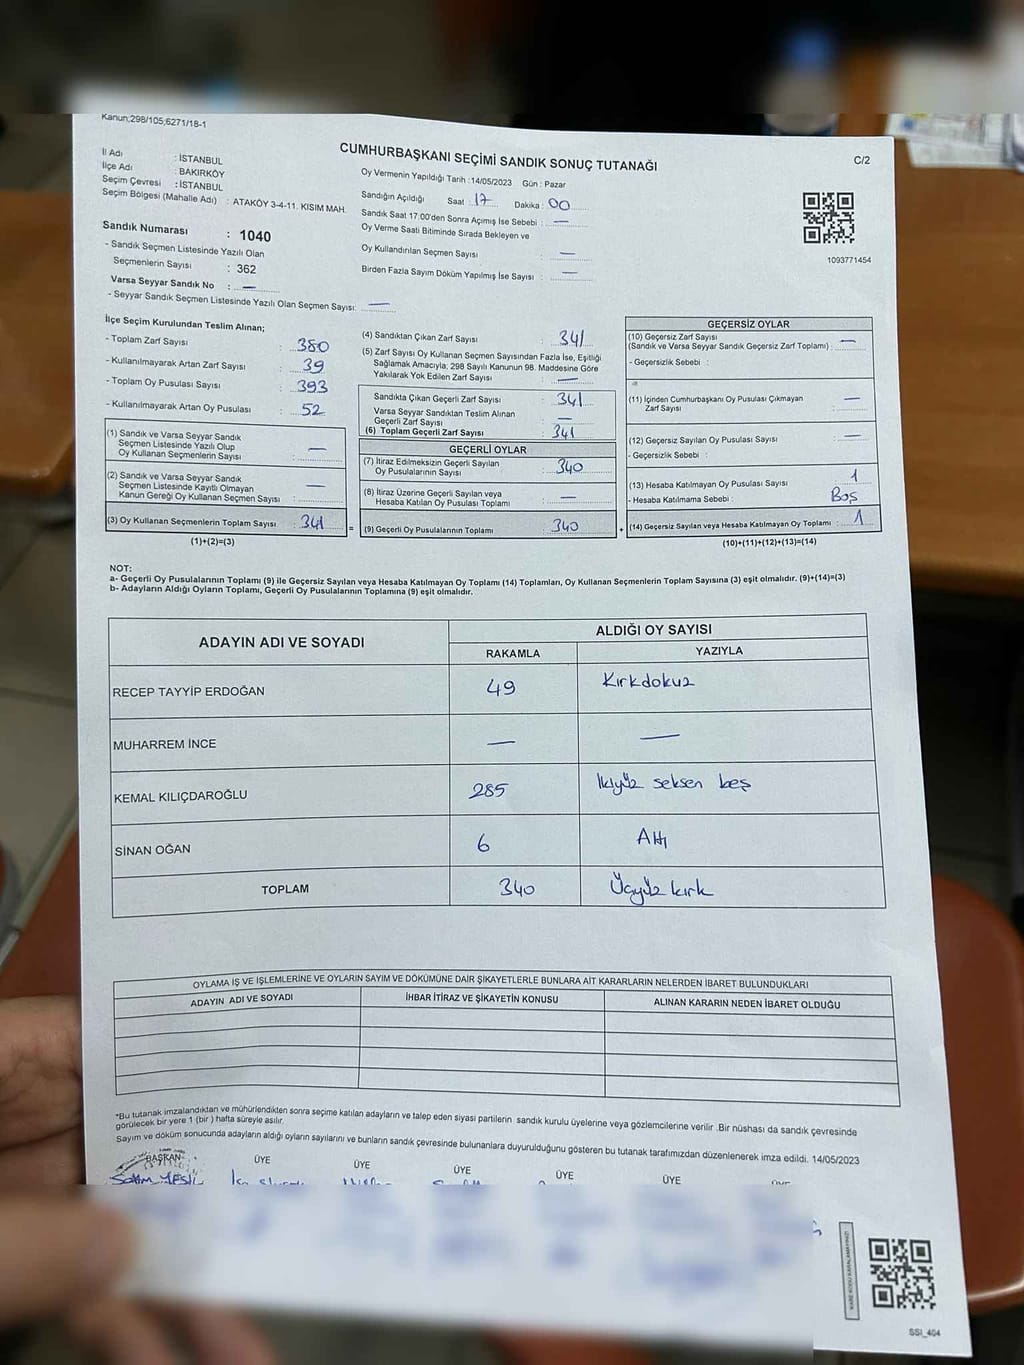 Kanun;298/105;6271/18-1
CUMHURBAŞKANI SEÇİMİ SANDIK SONUÇ TUTANAĞI
C/2
İl Adı : İSTANBUL
İlçe Adı : BAKIRKÖY
Seçim Çevresi : İSTANBUL
Seçim Bölgesi (Mahalle Adı) : ATAKÖY 3-4-11. KISIM MAH.
Oy Vermenin Yapıldığı Tarih :14/05/2023 Gün : Pazar
Sandığın Açıldığı Saat 17 Dakika : 00
Sandık Saat 17:00'den Sonra Açımış İse Sebebi : —
Oy Verme Saati Bitiminde Sırada Bekleyen ve
Oy Kullandırılan Seçmen Sayısı : —
Birden Fazla Sayım Döküm Yapılmış İse Sayısı : —
1093771454
Sandık Numarası : 1040
- Sandık Seçmen Listesinde Yazılı Olan
Seçmenlerin Sayısı : 362
Varsa Seyyar Sandık No : —
- Seyyar Sandık Seçmen Listesinde Yazılı Olan Seçmen Sayısı: —
İlçe Seçim Kurulundan Teslim Alınan;
- Toplam Zarf Sayısı : 380
- Kullanılmayarak Artan Zarf Sayısı : 39
- Toplam Oy Pusulası Sayısı : 393
- Kullanılmayarak Artan Oy Pusulası : 52
(1) Sandık ve Varsa Seyyar Sandık
Seçmen Listesinde Yazılı Olup
Oy Kullanan Seçmenlerin Sayısı : —
(2) Sandık ve Varsa Seyyar Sandık
Seçmen Listesinde Kayıtlı Olmayan
Kanun Gereği Oy Kullanan Seçmen Sayısı : —
(3) Oy Kullanan Seçmenlerin Toplam Sayısı : 341 =
(1)+(2)=(3)
(4) Sandıktan Çıkan Zarf Sayısı : 341
(5) Zarf Sayısı Oy Kullanan Seçmen Sayısından Fazla İse, Eşitliği
Sağlamak Amacıyla; 298 Sayılı Kanunun 98. Maddesine Göre
Yakılarak Yok Edilen Zarf Sayısı : —
Sandıkta Çıkan Geçerli Zarf Sayısı : 341
Varsa Seyyar Sandıktan Teslim Alınan
Geçerli Zarf Sayısı : —
(6) Toplam Geçerli Zarf Sayısı : 341
GEÇERLİ OYLAR
(7) İtiraz Edilmeksizin Geçerli Sayılan
Oy Pusulalarının Sayısı : 340
(8) İtiraz Üzerine Geçerli Sayılan veya
Hesaba Katılan Oy Pusulası Toplamı : —
(9) Geçerli Oy Pusulalarının Toplamı : 340 +
GEÇERSİZ OYLAR
(10) Geçersiz Zarf Sayısı
(Sandık ve Varsa Seyyar Sandık Geçersiz Zarf Toplamı) : —
- Geçersizlik Sebebi :
(11) İçinden Cumhurbaşkanı Oy Pusulası Çıkmayan
Zarf Sayısı : —
(12) Geçersiz Sayılan Oy Pusulası Sayısı : —
- Geçersizlik Sebebi :
(13) Hesaba Katılmayan Oy Pusulası Sayısı : 1
- Hesaba Katılmama Sebebi : Boş
(14) Geçersiz Sayılan veya Hesaba Katılmayan Oy Toplamı : 1
(10)+(11)+(12)+(13)=(14)
NOT:
a- Geçerli Oy Pusulalarının Toplamı (9) ile Geçersiz Sayılan veya Hesaba Katılmayan Oy Toplamı (14) Toplamları, Oy Kullanan Seçmenlerin Toplam Sayısına (3) eşit olmalıdır. (9)+(14)=(3)
b- Adayların Aldığı Oyların Toplamı, Geçerli Oy Pusulalarının Toplamına (9) eşit olmalıdır.
ADAYIN ADI VE SOYADI ALDIĞI OY SAYISI
RAKAMLA YAZIYLA
RECEP TAYYİP ERDOĞAN 49 Kırkdokuz
MUHARREM İNCE — —
KEMAL KILIÇDAROĞLU 285 İkiyüz seksen beş
SİNAN OĞAN 6 Altı
TOPLAM 340 Üçyüz kırk
OYLAMA İŞ VE İŞLEMLERİNE VE OYLARIN SAYIM VE DÖKÜMÜNE DAİR ŞİKAYETLERLE BUNLARA AİT KARARLARIN NELERDEN İBARET BULUNDUKLARI
ADAYIN ADI VE SOYADI İHBAR İTİRAZ VE ŞİKAYETİN KONUSU ALINAN KARARIN NEDEN İBARET OLDUĞU
*Bu tutanak imzalandıktan ve mühürlendikten sonra seçime katılan adayların ve talep eden siyasi partilerin sandık kurulu üyelerine veya gözlemcilerine verilir .Bir nüshası da sandık çevresinde
görülecek bir yere 1 (bir ) hafta süreyle asılır.
Sayım ve döküm sonucunda adayların aldığı oyların sayılarını ve bunların sandık çevresinde bulunanlara duyurulduğunu gösteren bu tutanak tarafımızdan düzenlenerek imza edildi. 14/05/2023
BAŞKAN ÜYE ÜYE ÜYE ÜYE ÜYE ÜYE
SSİ_404